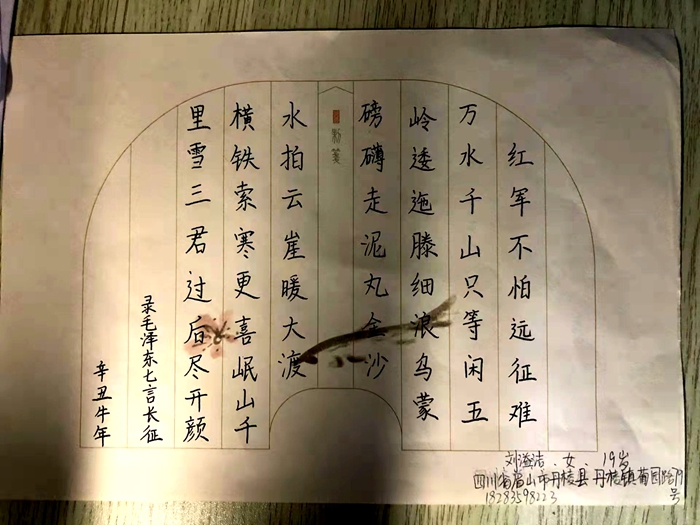 红军不怕远征难
万水千山只等闲五
岭逶迤滕细浪乌蒙
磅礴走泥丸金沙
粉笺
水拍云崖暖大渡
横铁索寒更喜岷山千
里雪三君过后尽开颜
录毛泽东七言长征
辛丑牛年
刘澄洁.女.19岁
四川省眉山市丹棱县丹棱镇葡园路19号
18283598223